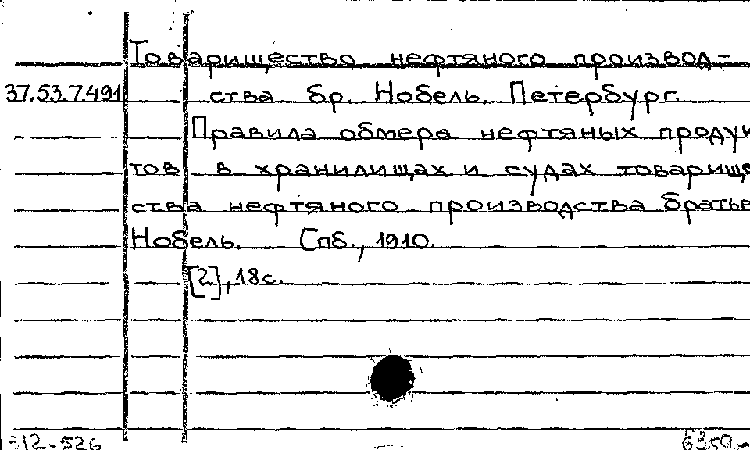 Товарищество нефтяного производ-
37.53.7.491 ства бр. Нобель. Петербург.
Правила обмера нефтяных продук
тов в хранилищах и судах товарище
ства нефтяного производства братье
Нобель. Спб., 1910.
[2], 18с.
312-526